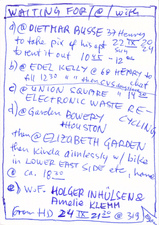 WAITING FOR / @ / with
d) @ DIETMAR BUSSE 37 Henry
to take pix of his apt 22 IX 24
to rent it out 10 45 - 12 00
b) @ EDEL KELLY @ 68 HENRY to
fill 12 30
c) @ UNION SQUARE 14 35
ELECTRONIC WASTE RE-
CYCLING
d) @ Garden BOWERY
HOUSTON
then @ ELIZABETH GARDEN
then kinda aimlessly w/ bike
in LOWER EAST SIDE etc, home
@ ca. 18 30
e) W.F. HOLGER INHÜLSEN &
Amelie KLEMM
from HD 24 IX 21 20 @ 319